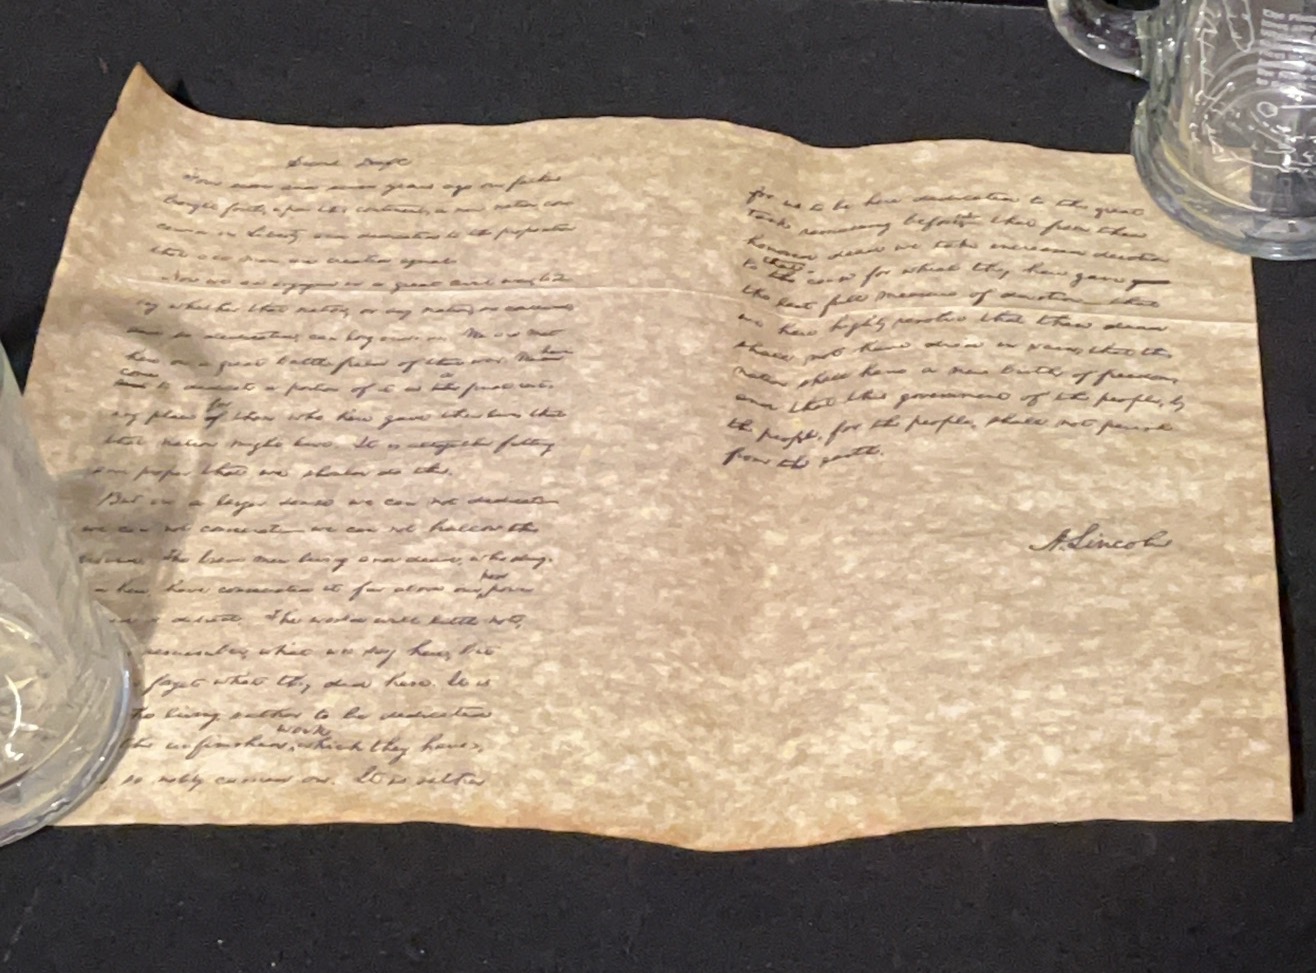 Second Draft
Four score and seven years ago our fathers
brought forth, upon this continent, a new nation, con
ceived in Liberty, and dedicated to the proposition
that all men are created equal.
Now we are engaged in a great civil war, test
ing whether that nation, or any nation, so conceived
and so dedicated, can long endure. We are met
here on a great battle field of that war. We
have
come
to dedicate a portion of it as the final rest
for
ing place of those who here gave their lives that
that nation might live. It is altogether fitting
and proper that we should do this.
But in a larger sense we can not dedicate
we can not consecrate we can not hallow this
ground. The brave men living and dead, who strug
here have consecrated it far above our
poor
power
detract. The world will little note,
remember, what we say here, but
forget what they did here. It is
living rather to be dedicated
work
the unfinished, which they have,
so nobly carried on. It is rather
for us to be here dedicated to the great
task remaining before us that from these
honored dead we take increased devotion
that
to the cause for which they here gave
the last full measure of devotion that
we here highly resolve that these dead
shall not have died in vain; that this
nation shall have a new birth of freedom;
and that this government of the people, by
the people, for the people, shall not perish
from the earth.
A. Lincoln